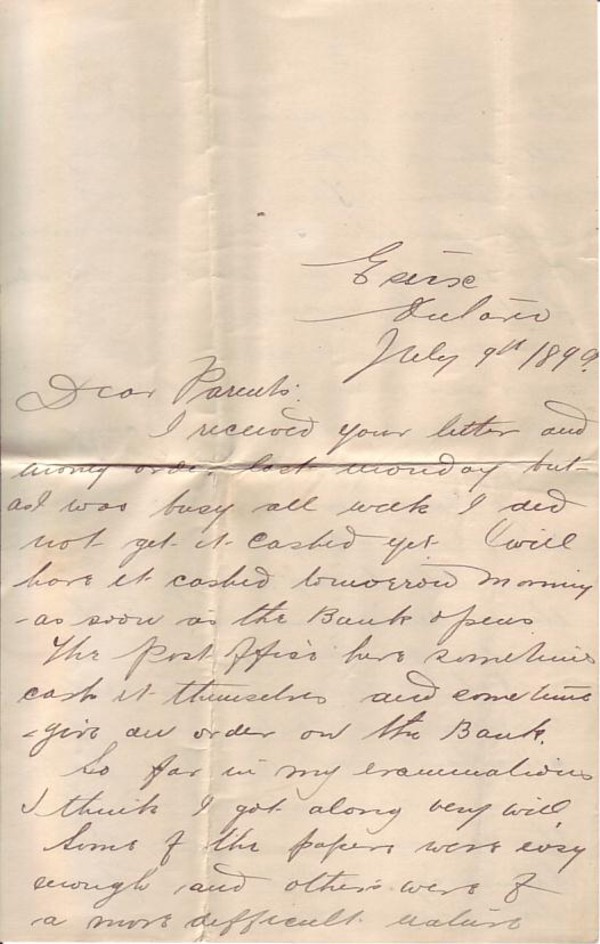 Essex
Ontario
July 9th 1899.
Dear Parents:
I received your letter and
money order last monday but
as I was busy all week I did
not get it cashed yet will
have it cashed tomorrow morning
as soon as the Bank opens
The Post Office here sometimes
cash it themselves and sometime
give an order on the Bank.
So far in my examinations
I think I got along very well
Some of the papers were easy
enough and others were of
a more difficult nature